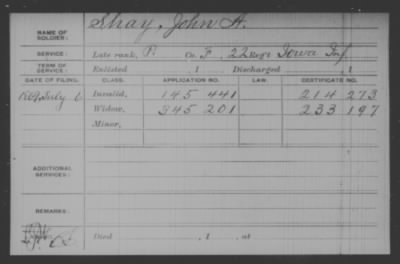 NAME OF SOLDIER: Shay, John A.
SERVICE: Late rank, P. Co. F, 22 Reg't Iowa Inf.
TERM OF SERVICE: Enlisted , 1 Discharged , 1
DATE OF FILING. CLASS. APPLICATION NO. LAW. CERTIFICATE NO.
1869 July 6 Invalid, 145 441 214 273
Widow, 345 201 233 197
Minor,
ADDITIONAL SERVICES:
REMARKS:
Died , 1 , at